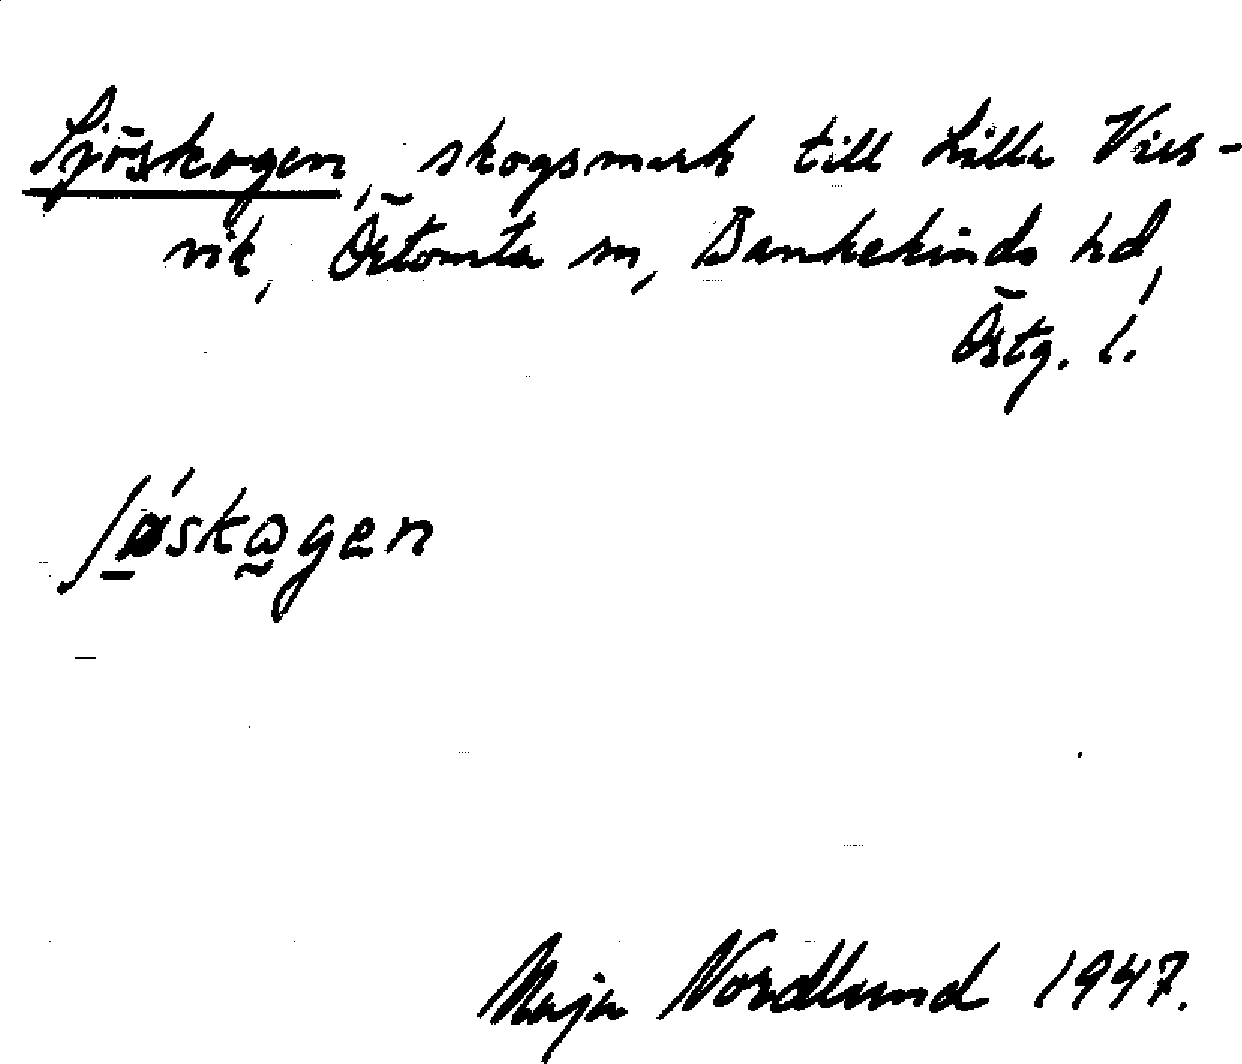 Sjöskogen, skogsmark till Lilla Vies-
vik, Östomta sn, Bankekinds hd,
Östg. l.
ʃøskogen
Maja Nordlund 1947.